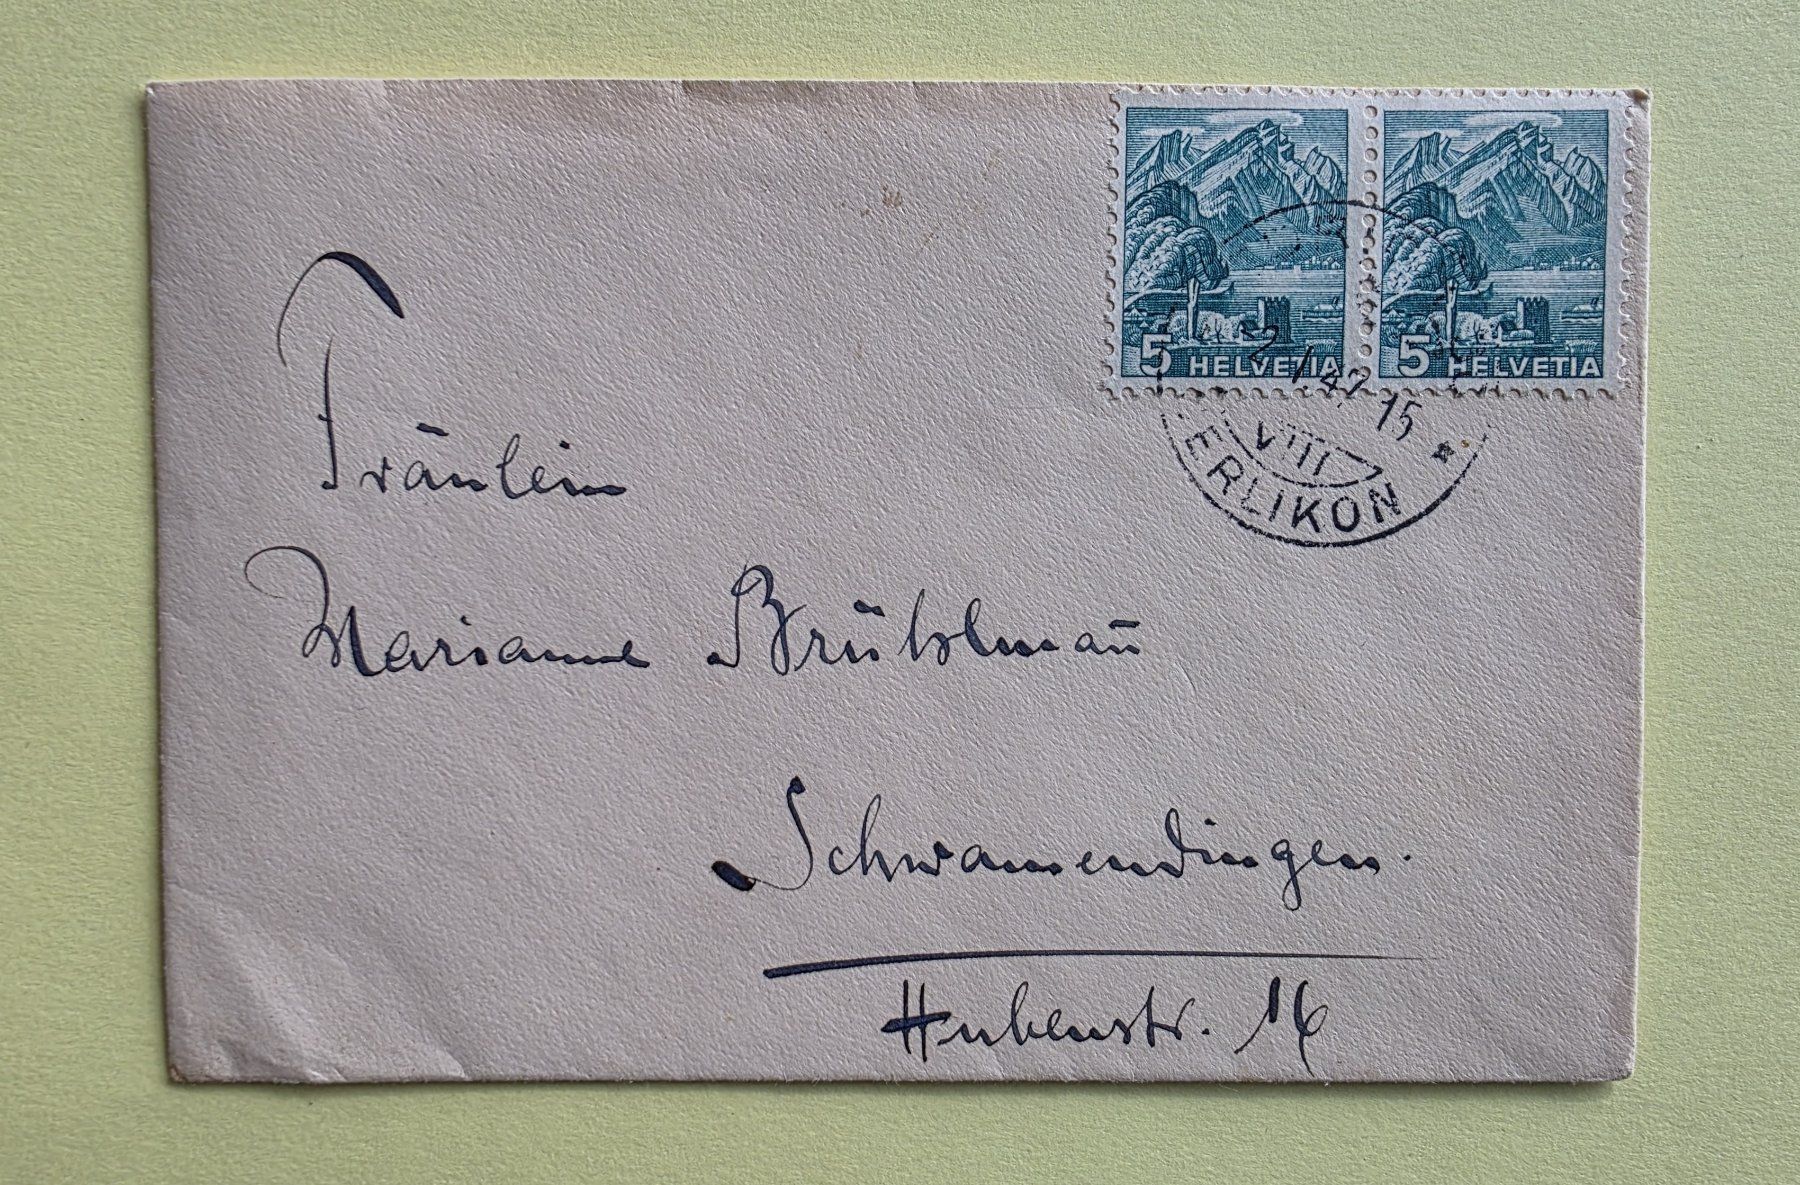 5 HELVETIA 5 HELVETIA
2 1.47 15
VIII
ERLIKON
Fräulein
Marianne Brühlman̄
Schwamendingen.
Hubenstr. 16